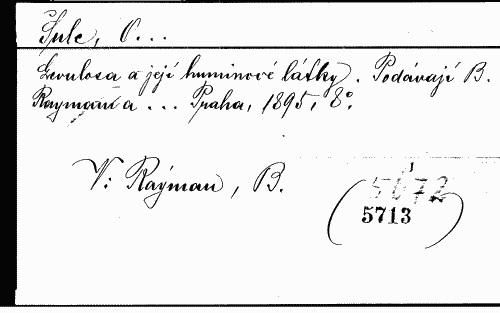 Šulc, O...
Levulosa a její huminové látky. Podávají B.
Rayman a ... Praha, 1895, 8°.
V: Rayman, B.
5672
5713